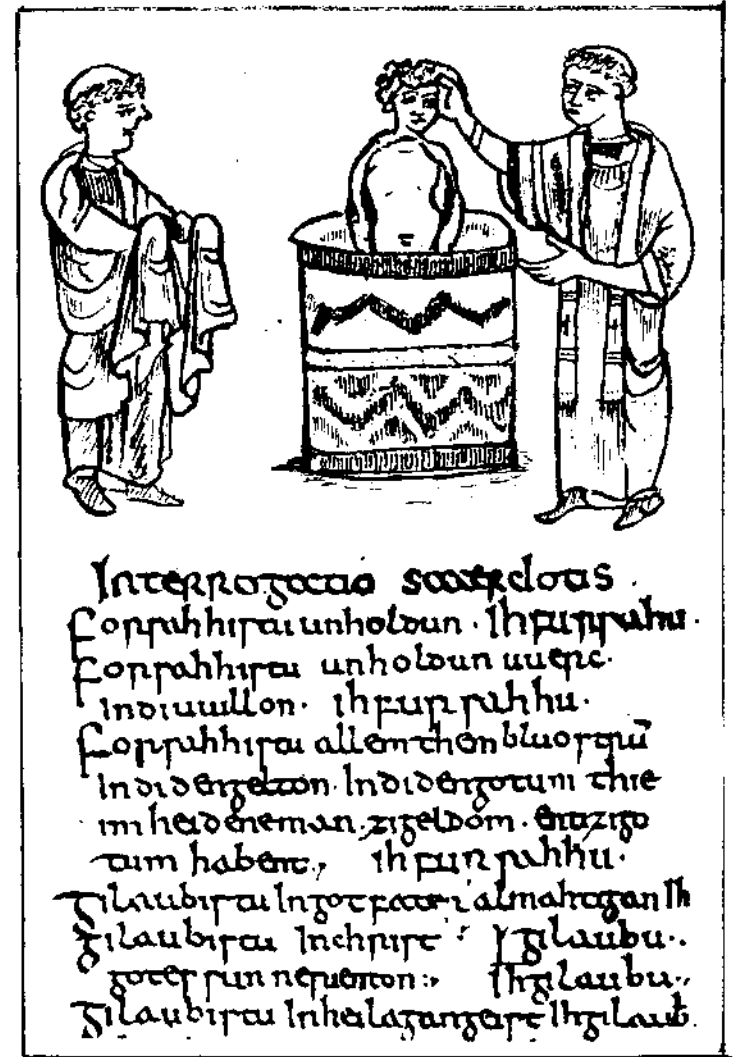 Interrogatio sacerdotis.
Forsahhistu unholdun. Ihfursahu.
Forsahhistu unholdun uuerc.
Indiuuillon. ihfursahhu.
Forsahhistu allem them bluostrū
Indidengelton. Indidengotum thie
imheideneman. zigeldom. entizigo
tum habent., ihfursahhu.
gilaubistu Ingotfater almahtigan Ih
gilaubistu Inchrist gilaubu..
gotessun nerienton Ihgilaubu.,
gilaubistu Inheilagangeist Ihgilaub.